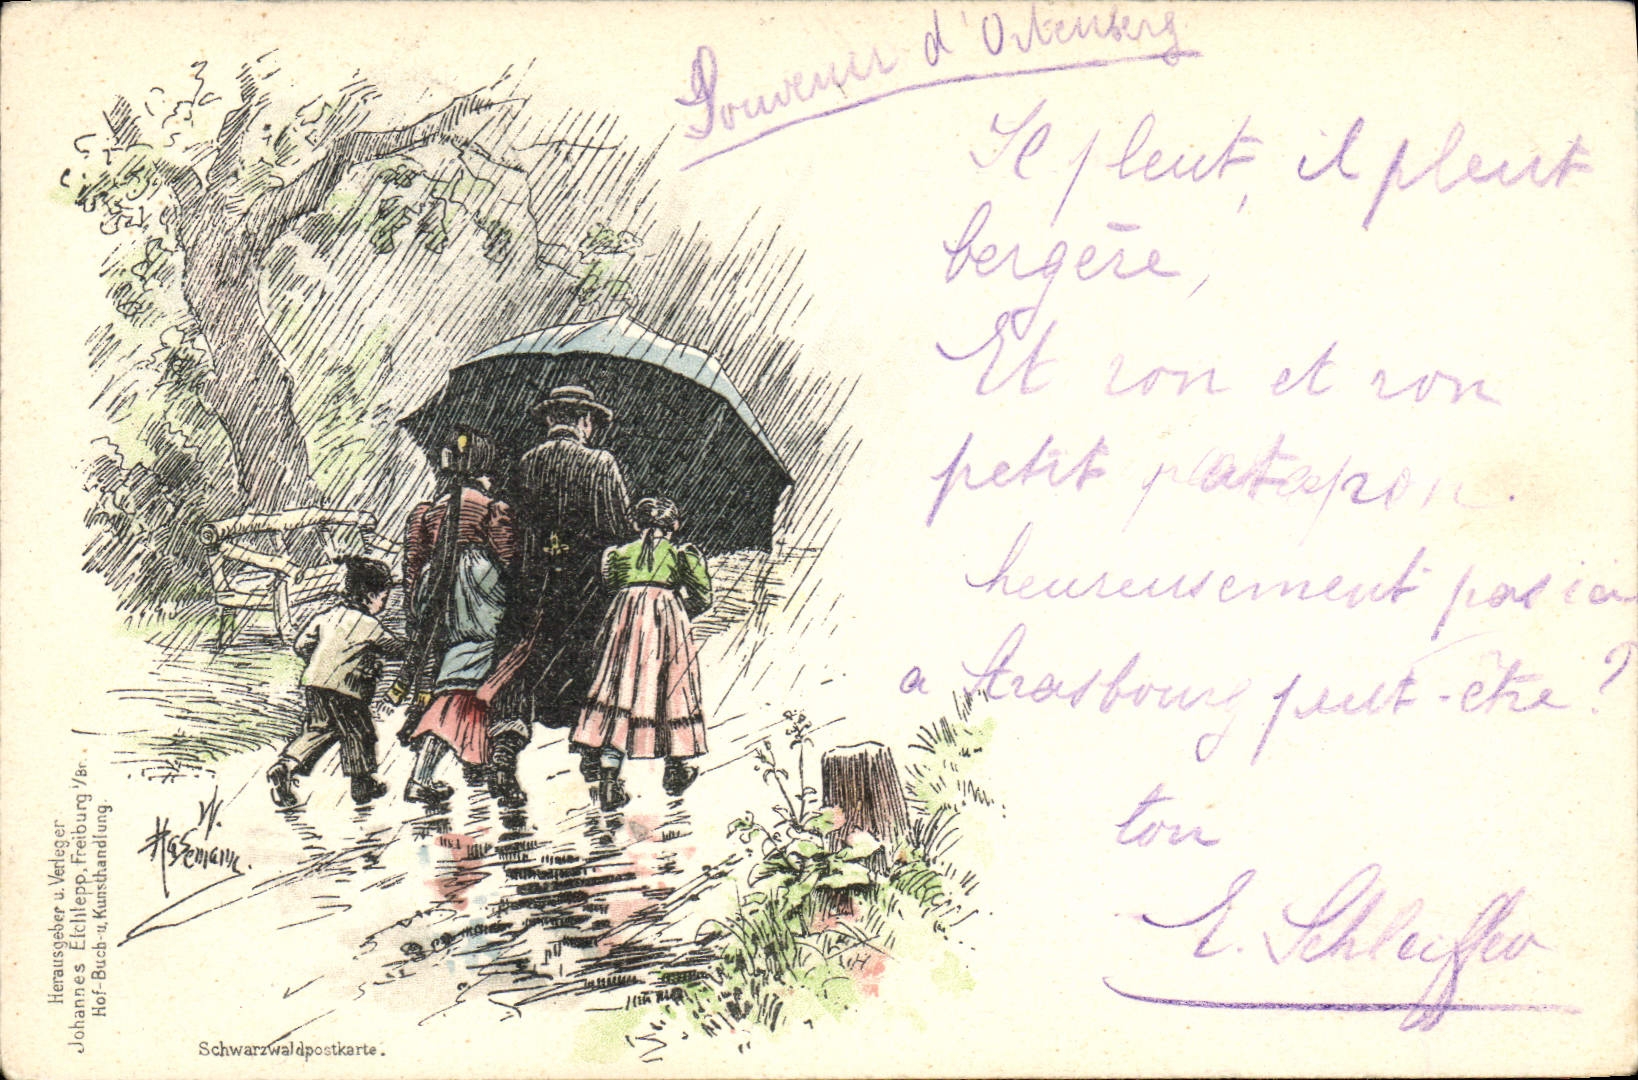 Souvenir d'Ortenberg
Il pleut, il pleut
bergère,
Et ron et ron
petit patapon.
heureusement pas ici
a Strasbourg peut-être ?
ton
E. Schleiffer
W.
Hasemann.
Herausgeber u. Verleger
Johannes Elchlepp, Freiburg i/Br.
Hof-Buch-u. Kunsthandlung.
Schwarzwaldpostkarte.